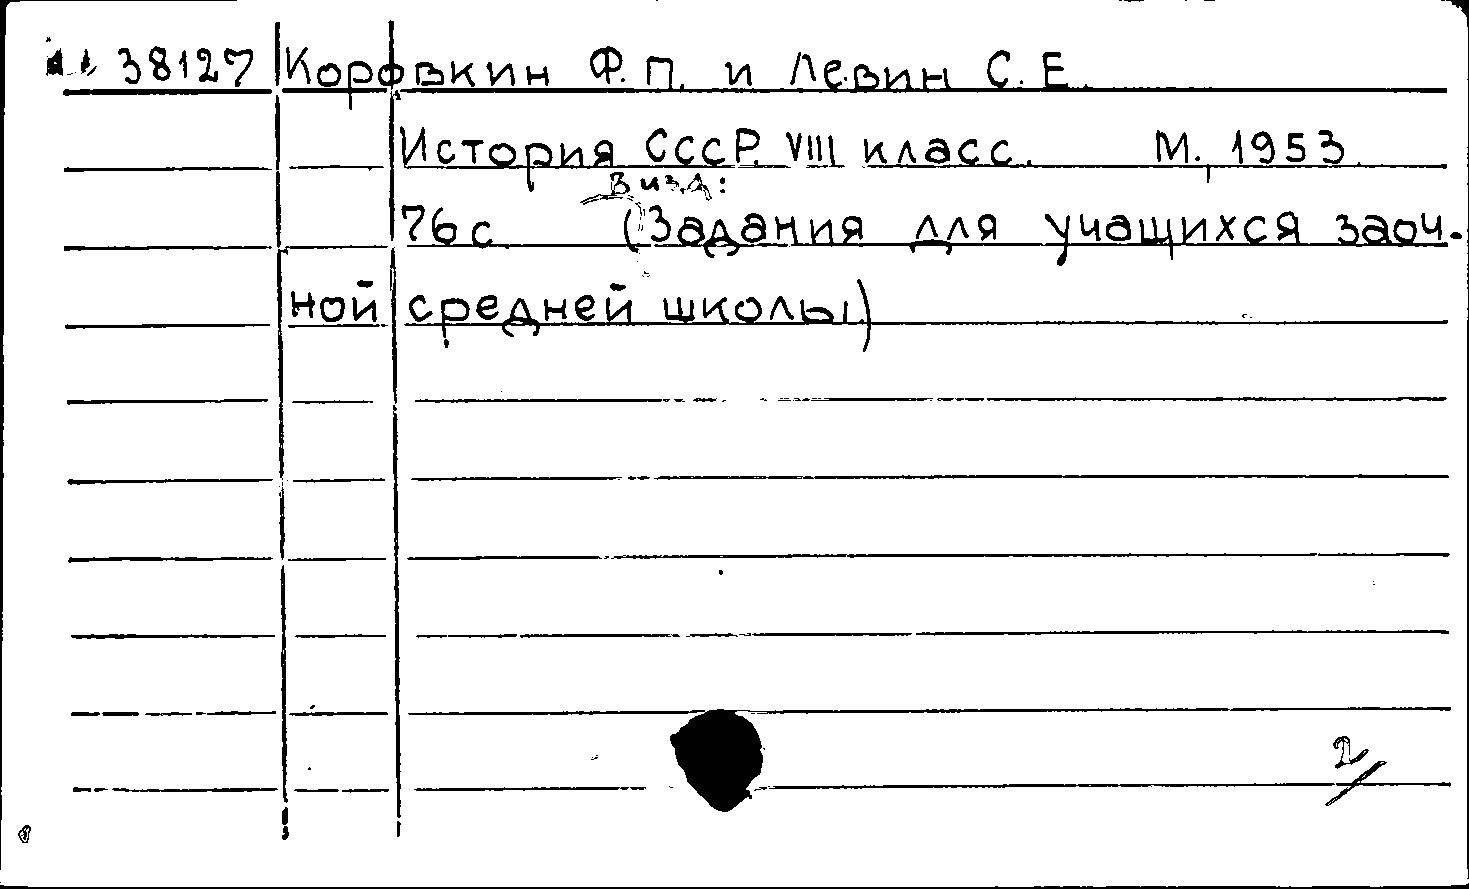 38127 Коровкин Ф.П. и Левин С.Е.
История СССР. VIII класс. М., 1953.
В изд:
76 с. (Задания для учащихся заоч-
ной средней школы)
2/